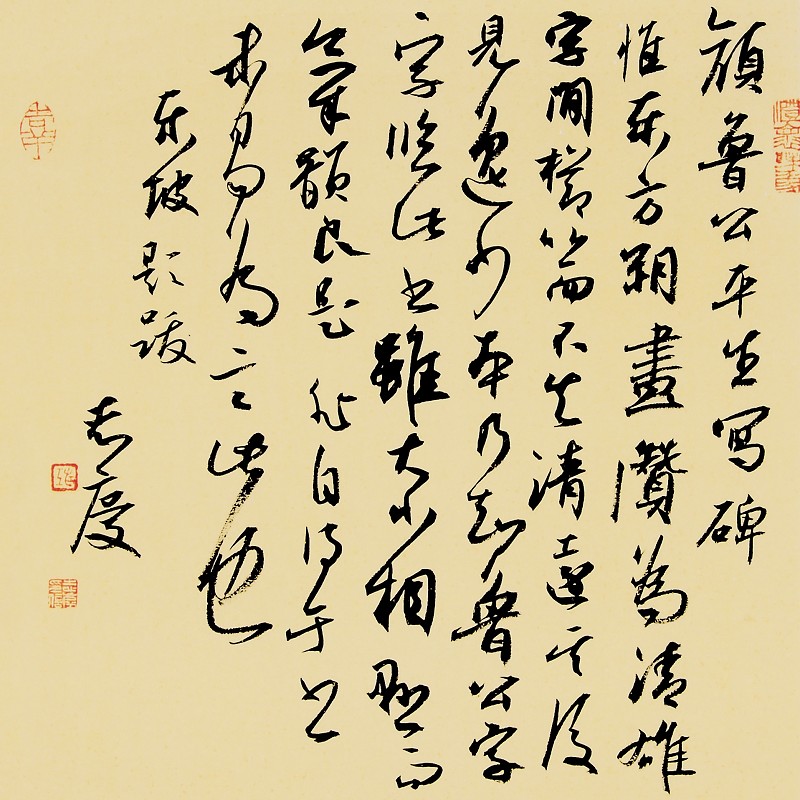 顏魯公平生寫碑
惟东方朔畫讚為清雄
字間櫛比而不失清遠其後
見逸少本乃知魯公字
字臨此书雖大小相懸而
氣韻良是非自得于书
未易為言此也
东坡題跋
志慶